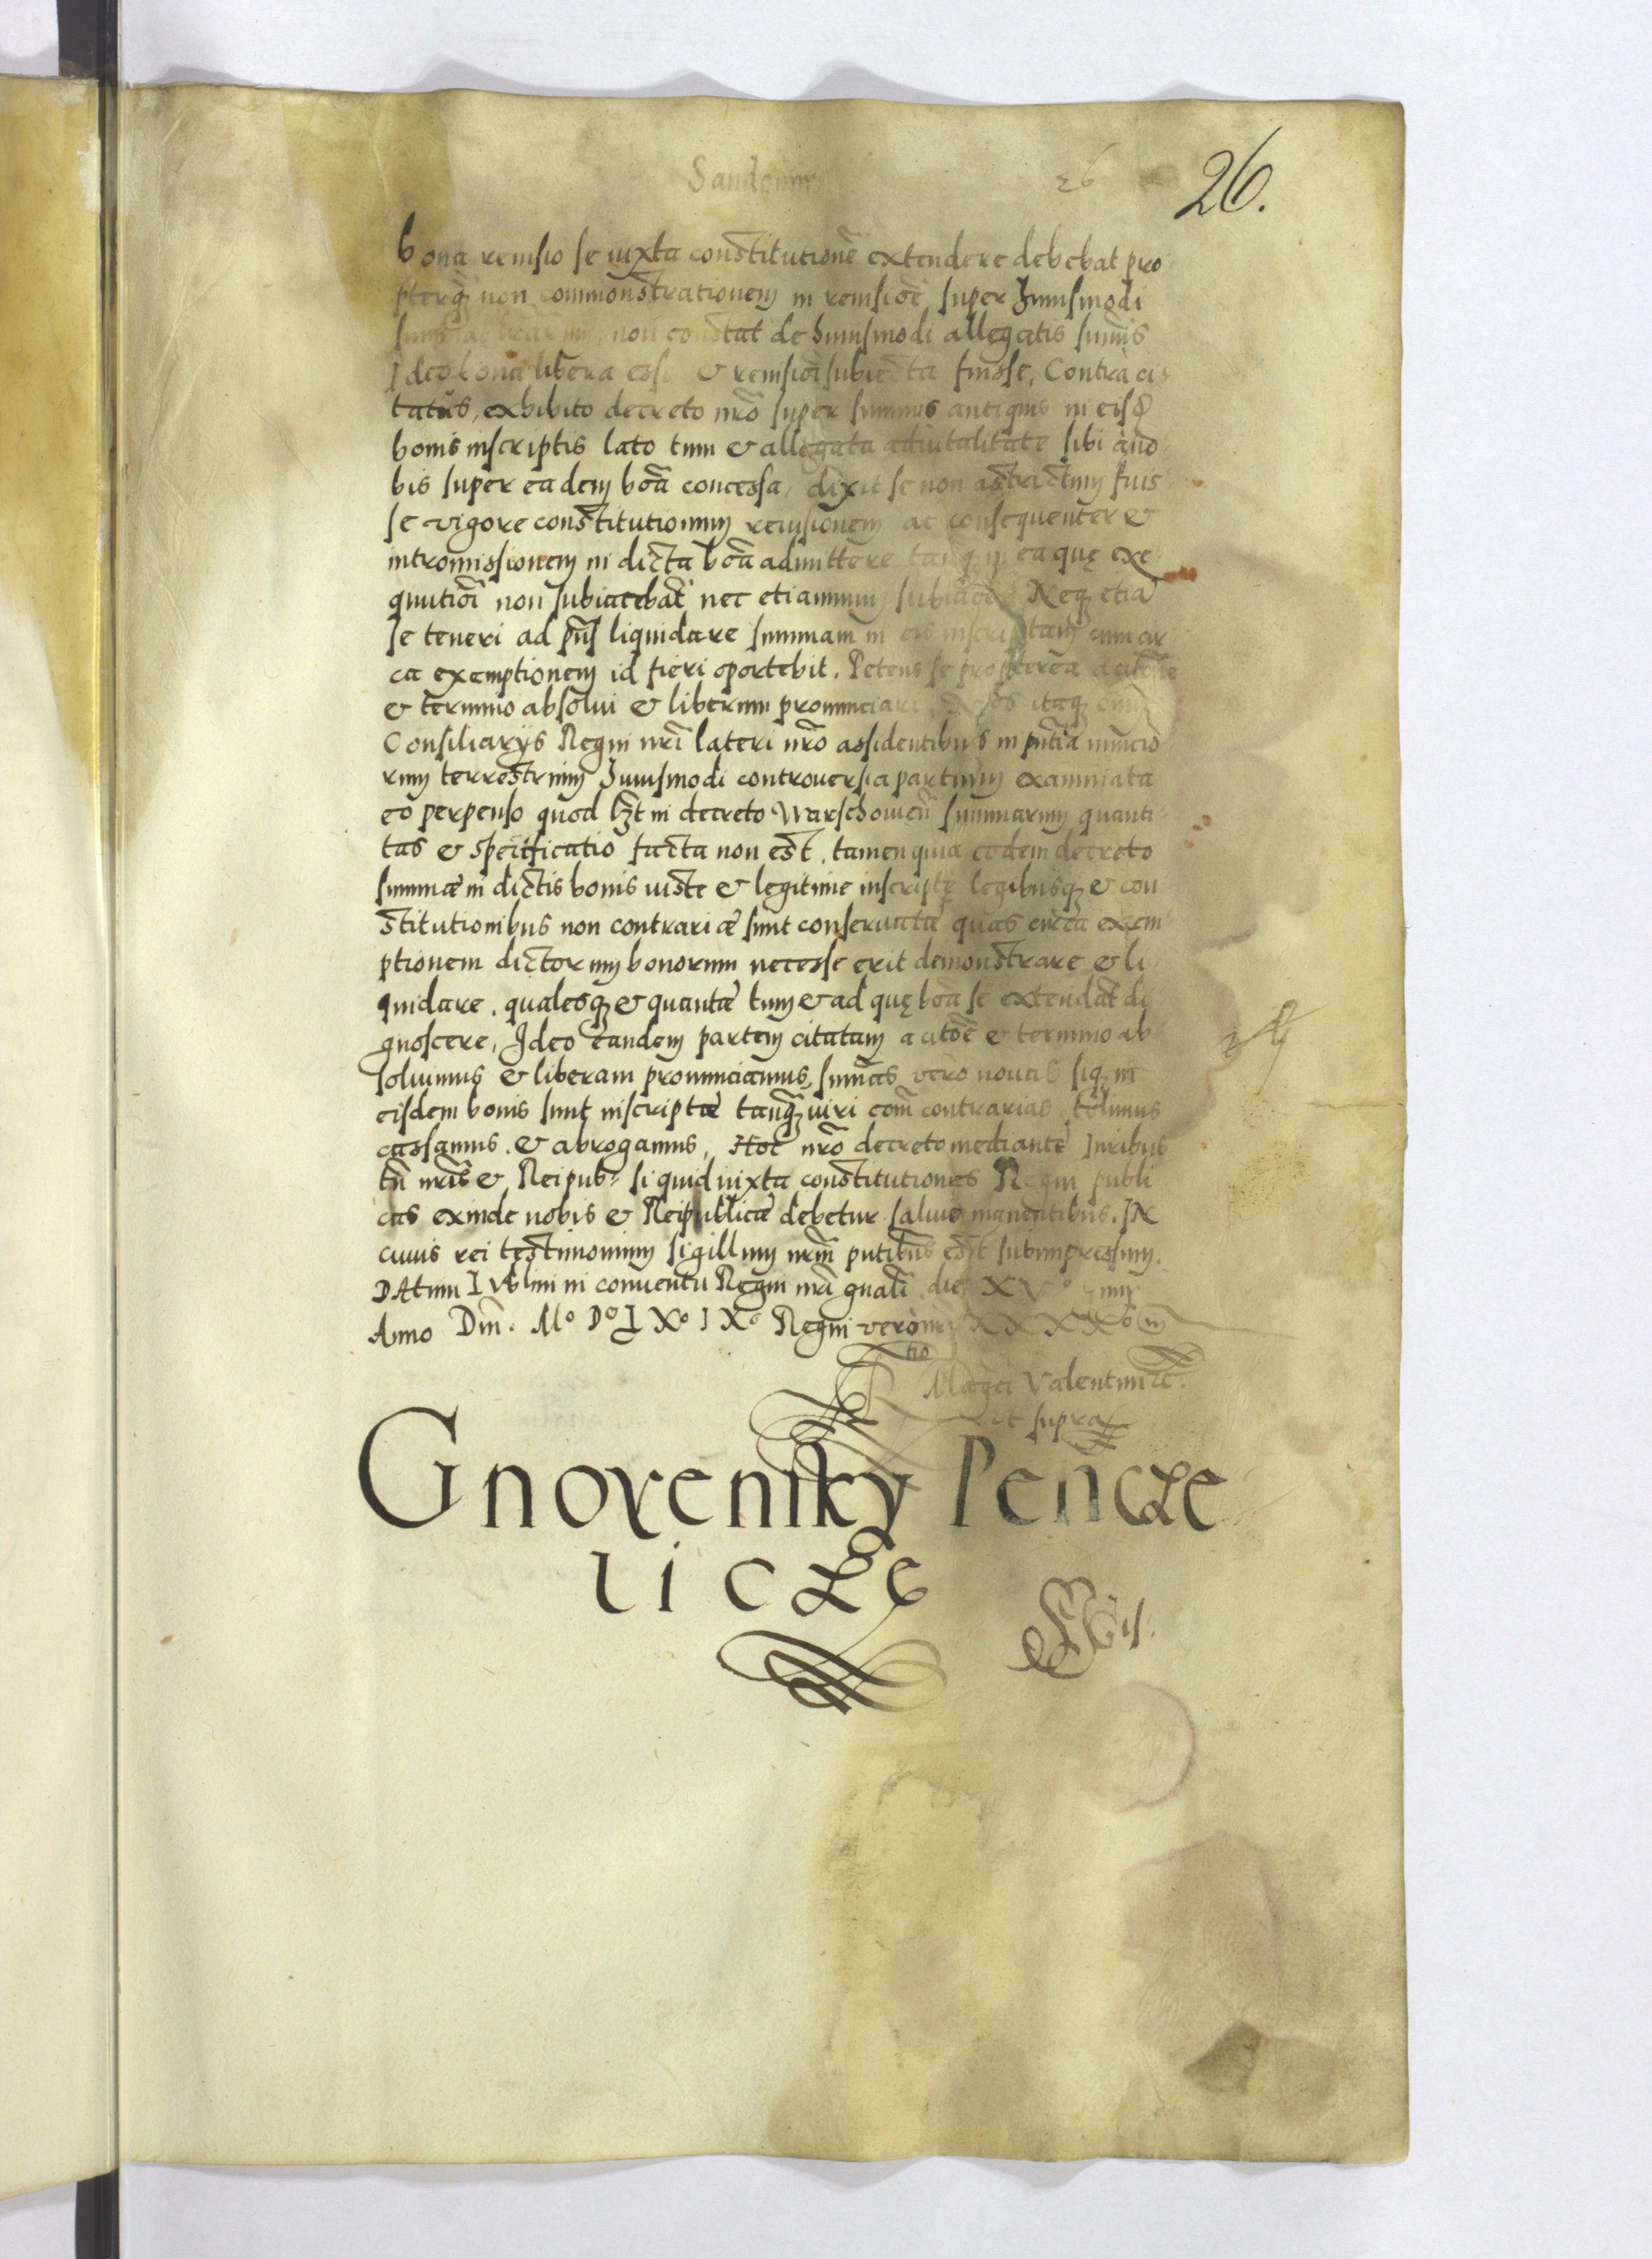 Sandomir
26
26.
bona reuisio se iuxta constitutionē extendere debebat pro
pterq̃ non commonstrationem in reuisiōe super huiusmodi
non constat de huiusmodi allegatis sum̄is
Ideo bona libera esse & reuisiōi subiecta fuisse, Contra ci
tatus, exhibito decreto nr̄o super summis antiquis in eisd
bonis inscriptis lato tum & allegata aduitalitate sibi a no
bis super eadem bōa concessa, dixit se non astrictum fuis
se vigore constitutionum reuisionem ac consequenter &
intromissionem in dicta bōa admittere tanq̃ in ea quę exe
quutiōi non subiacebāt nec etiamnum subiacēt Neq; etiā
se teneri ad pn̄s liquidare summam in eis inscriptam cum cir
ca exemptionem id fieri oportebit. Petens se propterea a citōne
& termino absolui & liberum pronunciari, Nos itaq; cum
Consiliarÿs Regni nr̄i lateri nr̄o assidentibus in pn̄tia nuncio
rum terrestrium huiusmodi controuersia partium examinata
eo perpenso quod lꝫt in decreto Warschouieñ summarum quanti
tas & specificatio facta non est, tamen quia eodem decreto
summæ in dictis bonis iuste & legitime inscriptę legibusq; & con
stitutionibus non contrariæ sunt conseruatæ quas circa exem
ptionem dictorum bonorum necesse erit demonstrare & li
quidare, qualesq; & quantæ tum & ad quę bōa se extendāt di
gnoscere, Ideo eandem partem citatam a citōe & termino ab
soluimus & liberam pronunciamus, sum̄as vero nouas siq; in
eisdem bonis sunt inscriptæ tanq̃ iuri com̄ contrarias tollimus
cassamus & abrogamus, Hoc nr̄o decreto mediante Iuribus
tn̄ nr̄is & Reipub: si quid iuxta constitutiones Regni publi
cas exinde nobis & Reipublicæ debetur saluis manentibus. IN
cuius rei testimonium sigillum nr̄m pn̄tibus est subimpressum.
DAtum Lublini in conuentu Regni nr̄i gnāli die XV
Anno Dn̄i. Mo Do LXo IXo Regni vero nr̄i XXXXo
Rtio Magci Valentini &c.
ut supra
Gnoyenſky Pencze
licze